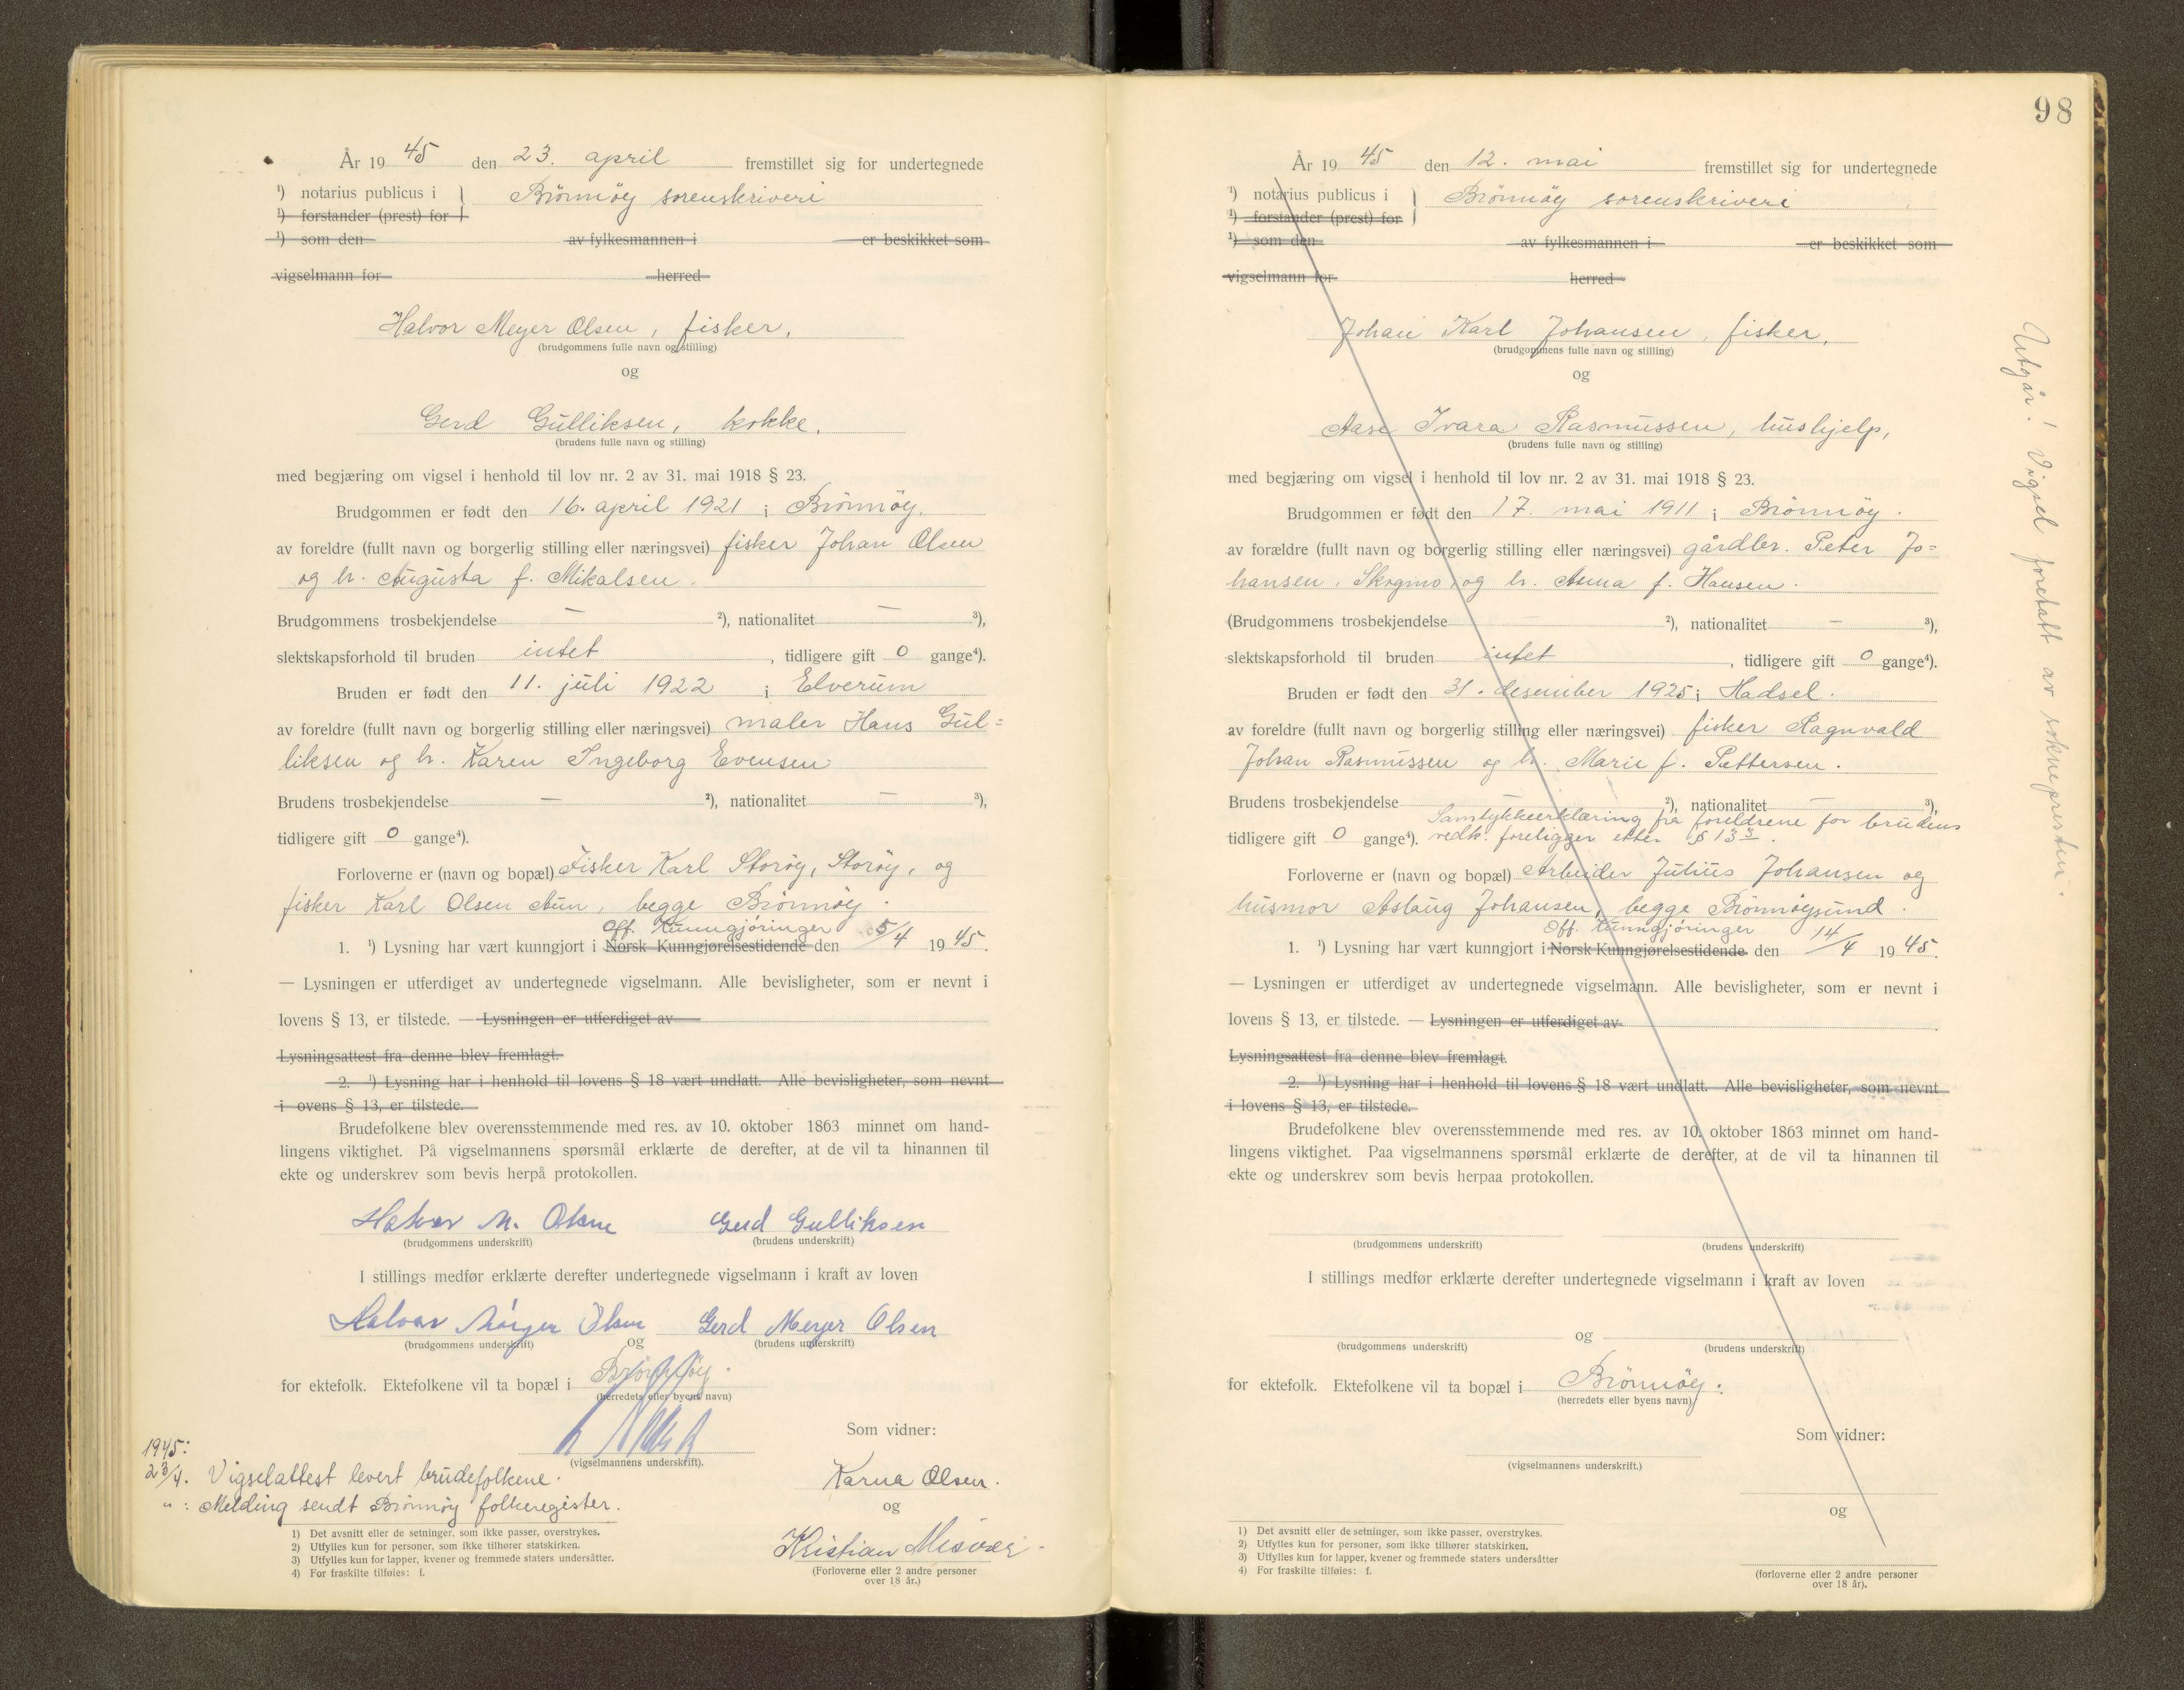 År 19 45 den 23. april fremstillet sig for undertegnede
¹) notarius publicus i } Brönnöy sorenskriveri
¹) forstander (prest) for
¹) som den av fylkesmannen i er beskikket som
vigselmann for herred
Halvor Meyer Olsen, fisker,
(brudgommens fulle navn og stilling)
og
Gerd Gulliksen, kokke.
(brudens fulle navn og stilling)
med begjæring om vigsel i henhold til lov nr. 2 av 31. mai 1918 § 23.
Brudgommen er født den 16. april 1921 i Brönnöy.
av foreldre (fullt navn og borgerlig stilling eller næringsvei) fisker Johan Olsen
og h. Augusta f. Mikalsen.
Brudgommens trosbekjendelse — ²), nationalitet — ³),
slektskapsforhold til bruden intet, tidligere gift 0 gange⁴).
Bruden er født den 11. juli 1922 i Elverum
av foreldre (fullt navn og borgerlig stilling eller næringsvei) maler Hans Gul=
liksen og h. Karen Ingeborg Evensen
Brudens trosbekjendelse — ²), nationalitet — ³),
tidligere gift 0 gange⁴).
Forloverne er (navn og bopæl) Fisker Karl Storöy, Storöy, og
fisker Karl Olsen Aun, begge Brönnöy.
Off. Kunngjöringer
1. ¹) Lysning har vært kunngjort i Norsk Kunngjørelsestidende den 5/4 1945.
— Lysningen er utferdiget av undertegnede vigselmann. Alle bevisligheter, som er nevnt i
lovens § 13, er tilstede. — Lysningen er utferdiget av
Lysningsattest fra denne blev fremlagt.
2. ¹) Lysning har i henhold til lovens § 18 vært undlatt. Alle bevisligheter, som nevnt
i ovens § 13, er tilstede.
Brudefolkene blev overensstemmende med res. av 10. oktober 1863 minnet om hand-
lingens viktighet. På vigselmannens spørsmål erklærte de derefter, at de vil ta hinannen til
ekte og underskrev som bevis herpå protokollen.
Halvor M. Olsen Gerd Gulliksen
(brudgommens underskrift) (brudens underskrift)
I stillings medfør erklærte derefter undertegnede vigselmann i kraft av loven
Halvor Meyer Olsen og Gerd Meyer Olsen
(brudgommens underskrift) (brudens underskrift)
for ektefolk. Ektefolkene vil ta bopæl i Brönnöy.
(herredets eller byens navn)
Som vidner:
(vigselmannens underskrift).
1945:
23/4. Vigselattest levert brudefolkene.
" : Melding sendt Brönnöy folkeregister.
Karna Olsen.
og
Kristian Misvær
(Forloverne eller 2 andre personer
over 18 år.)
1) Det avsnitt eller de setninger, som ikke passer, overstrykes.
2) Utfylles kun for personer, som ikke tilhører statskirken.
3) Utfylles kun for lapper, kvener og fremmede staters undersåtter.
4) For fraskilte tilføies: f.
98
År 19 45 den 12. mai fremstillet sig for undertegnede
¹) notarius publicus i } Brönnöy sorenskriveri
¹) forstander (prest) for
¹) som den av fylkesmannen i er beskikket som
vigselmann for herred
Johan Karl Johansen, fisker,
(brudgommens fulle navn og stilling)
og
Aase Ivara Rasmussen, hushjelp,
(brudens fulle navn og stilling)
med begjæring om vigsel i henhold til lov nr. 2 av 31. mai 1918 § 23.
Brudgommen er født den 17. mai 1911 i Brönnöy.
av forældre (fullt navn og borgerlig stilling eller næringsvei) gårdbr. Peter Jo=
hansen, Skogmo, og h. Anna f. Hansen.
(Brudgommens trosbekjendelse ²), nationalitet — ³),
slektskapsforhold til bruden intet, tidligere gift 0 gange⁴).
Bruden er født den 31. desember 1925 i Hadsel.
av foreldre (fullt navn og borgerlig stilling eller næringsvei) fisker Ragnvald
Johan Rasmussen og h. Marie f. Pettersen.
Brudens trosbekjendelse — ²), nationalitet — ³),
Samtykkeerklæring fra foreldrene for brudens
tidligere gift 0 gange⁴). vedk. foreligger etter § 13 3.
Forloverne er (navn og bopæl) Arbeider Julius Johansen og
husmor Aslaug Johansen, begge Brönnöysund.
Off. Kunngjöringer
1. ¹) Lysning har vært kunngjort i Norsk Kunngjørelsestidende den 14/4 1945.
— Lysningen er utferdiget av undertegnede vigselmann. Alle bevisligheter, som er nevnt i
lovens § 13, er tilstede. — Lysningen er utferdiget av
Lysningsattest fra denne blev fremlagt.
2. ¹) Lysning har i henhold til lovens § 18 vært undlatt. Alle bevisligheter, som nevnt
i lovens § 13, er tilstede.
Brudefolkene blev overensstemmende med res. av 10. oktober 1863 minnet om hand-
lingens viktighet. Paa vigselmannens spørsmål erklærte de derefter, at de vil ta hinannen til
ekte og underskrev som bevis herpaa protokollen.
(brudgommens underskrift) (brudens underskrift)
I stillings medfør erklærte derefter undertegnede vigselmann i kraft av loven
og
(brudgommens underskrift) (brudens underskrift)
for ektefolk. Ektefolkene vil ta bopæl i Brönnöy.
(herredets eller byens navn)
Som vidner:
(vigselmannens underskrift.)
og
(forloverne eller 2 andre personer
over 18 år).
1) Det avsnitt eller de setninger, som ikke passer, overstrykes.
2) Utfylles kun for personer, som ikke tilhører statskirken.
3) Utfylles kun for lapper, kvener og fremmede staters undersåtter
4) For fraskilte tilføies: f.
Utgår! Vigsel foretatt av soknepresten.